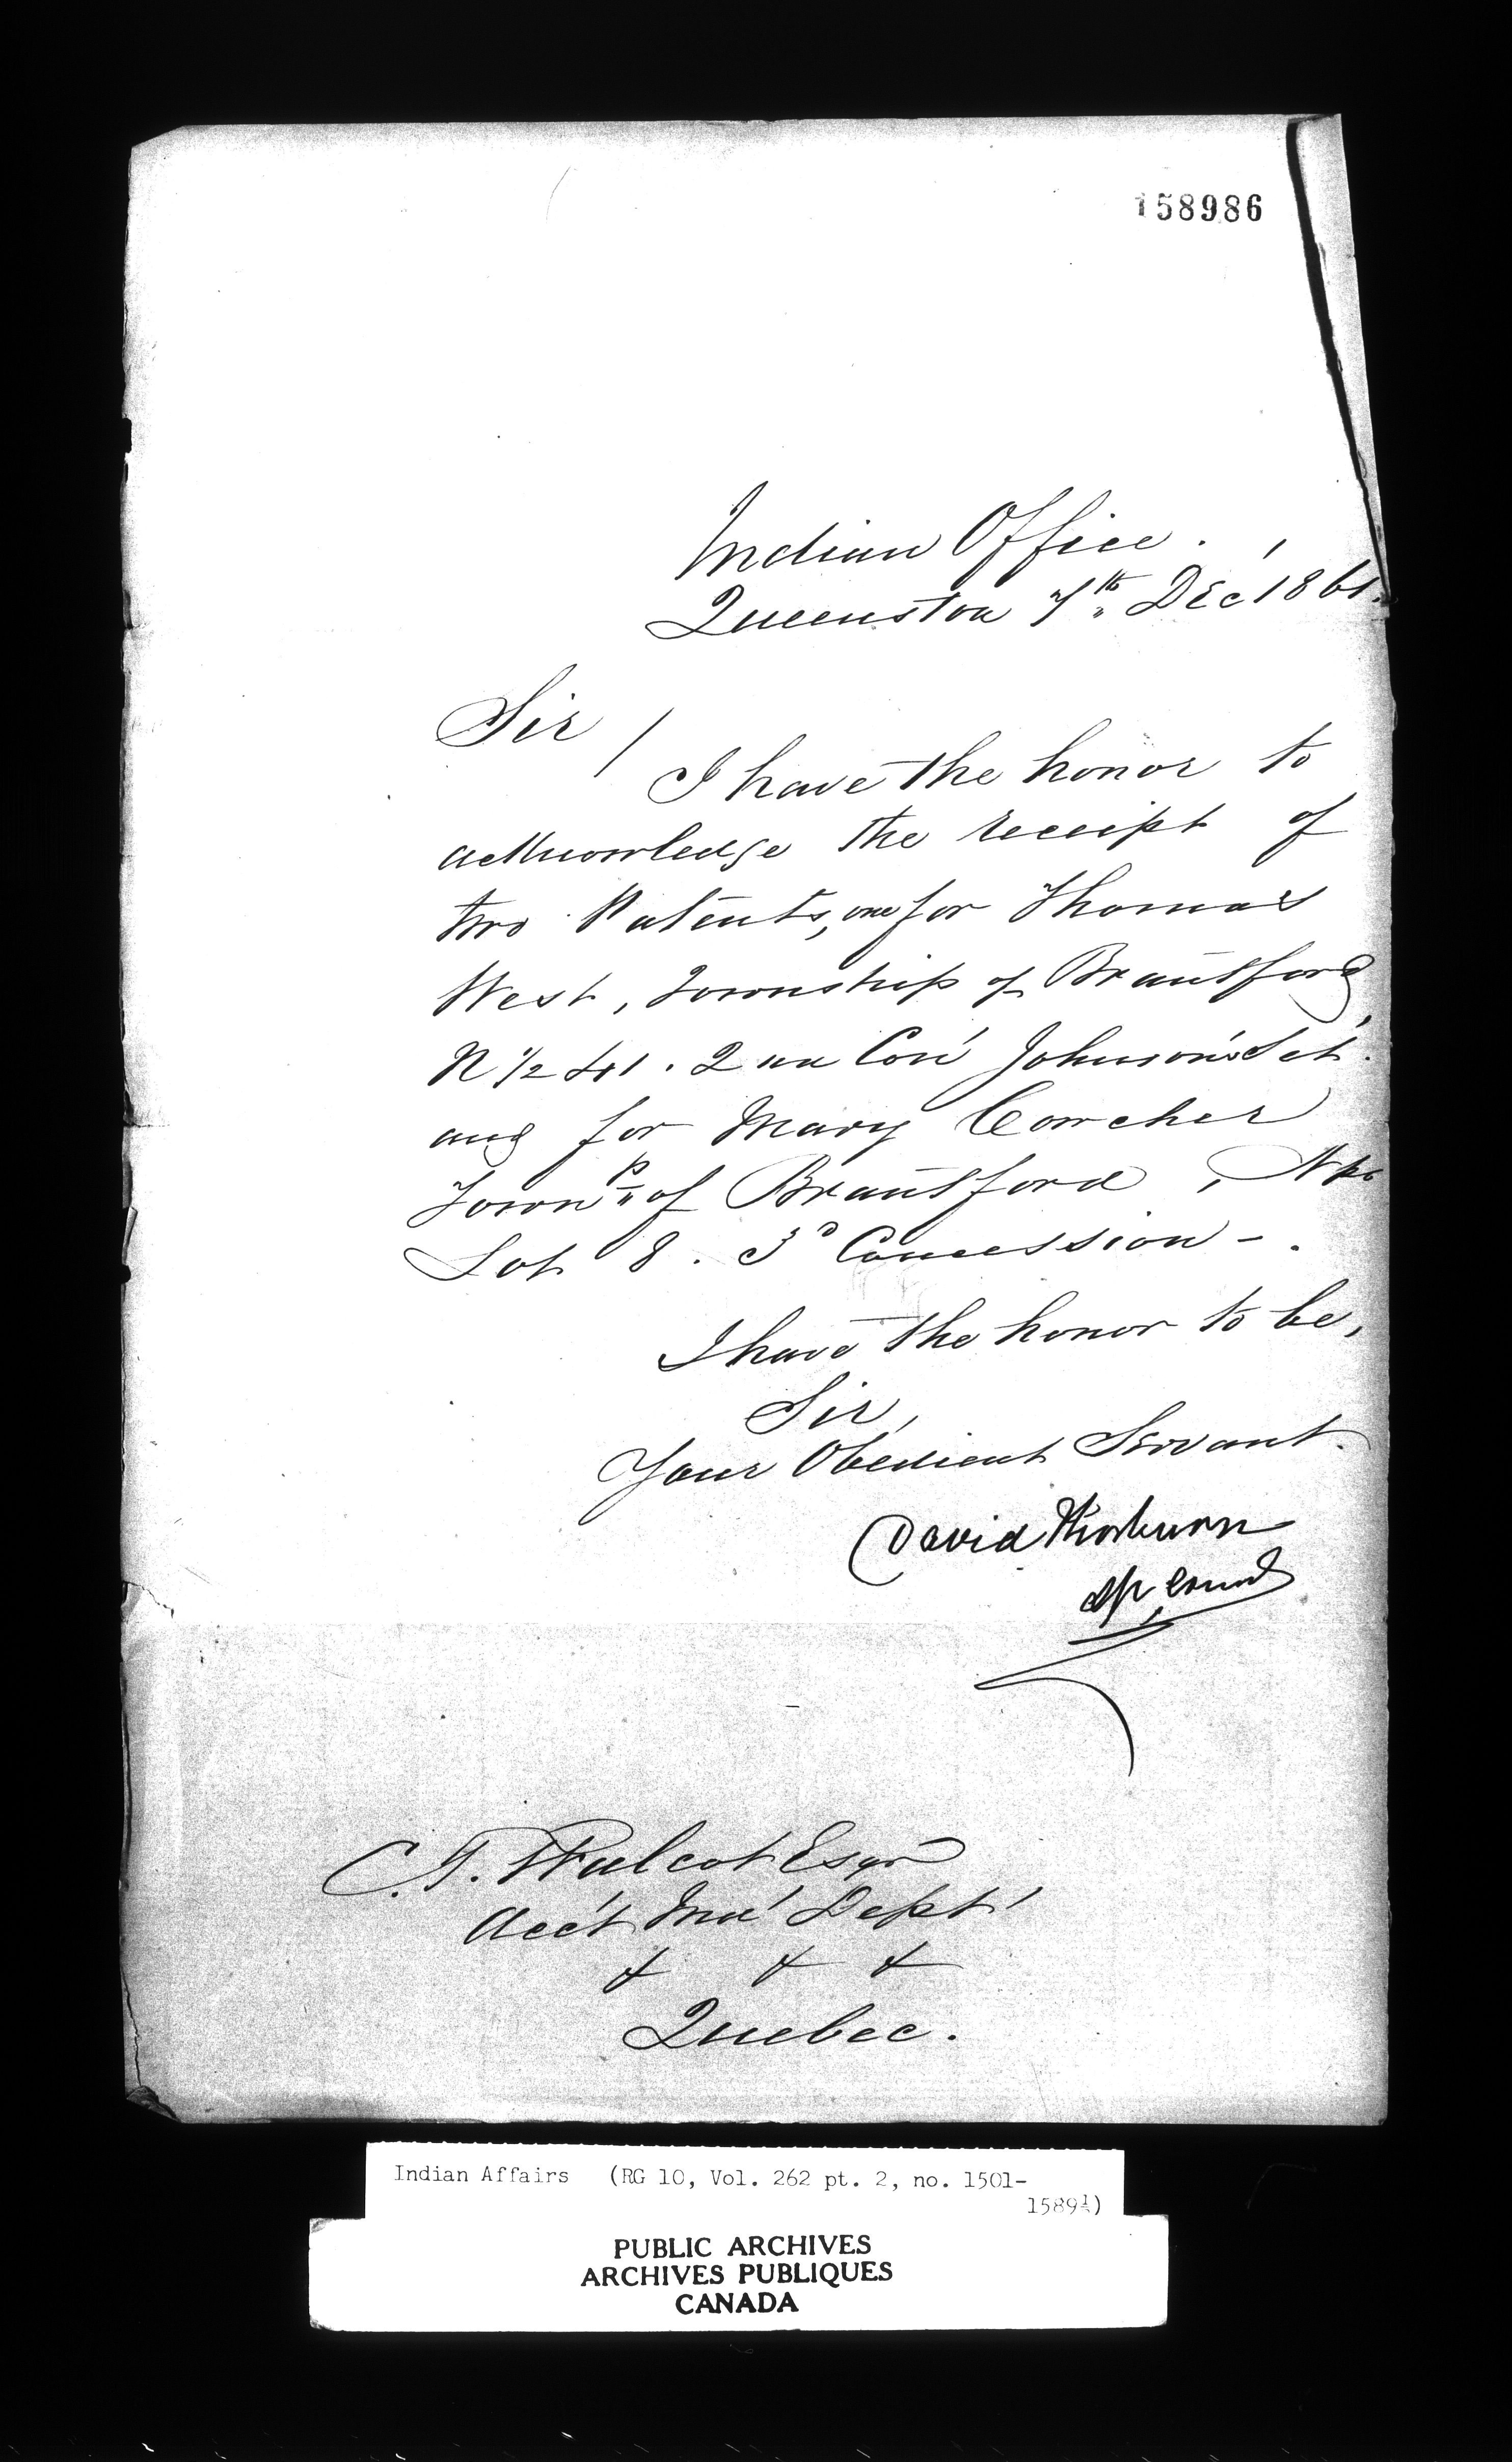 158986
Indian Office.
Queenston 7th Dec' 1861.
Sir /
I have the honor to
acknowledge the receipt of
two Patents, one for Thomas
West, Township of Brantford,
N 1/2 41. 2nd Con' Johnson's Set'.
and for Mary Cowcher
Townp of Brantford, N pt
Lot 8. 3d Concession -.
I have the honor to be,
Sir,
Your Obedient Servant.
David Thorburn
C. T. Walcot Esqr
Acc't Ind' Dept'
& & &
Quebec.
Indian Affairs (RG 10, Vol. 262 pt. 2, no. 1501-
1589¼)
PUBLIC ARCHIVES
ARCHIVES PUBLIQUES
CANADA